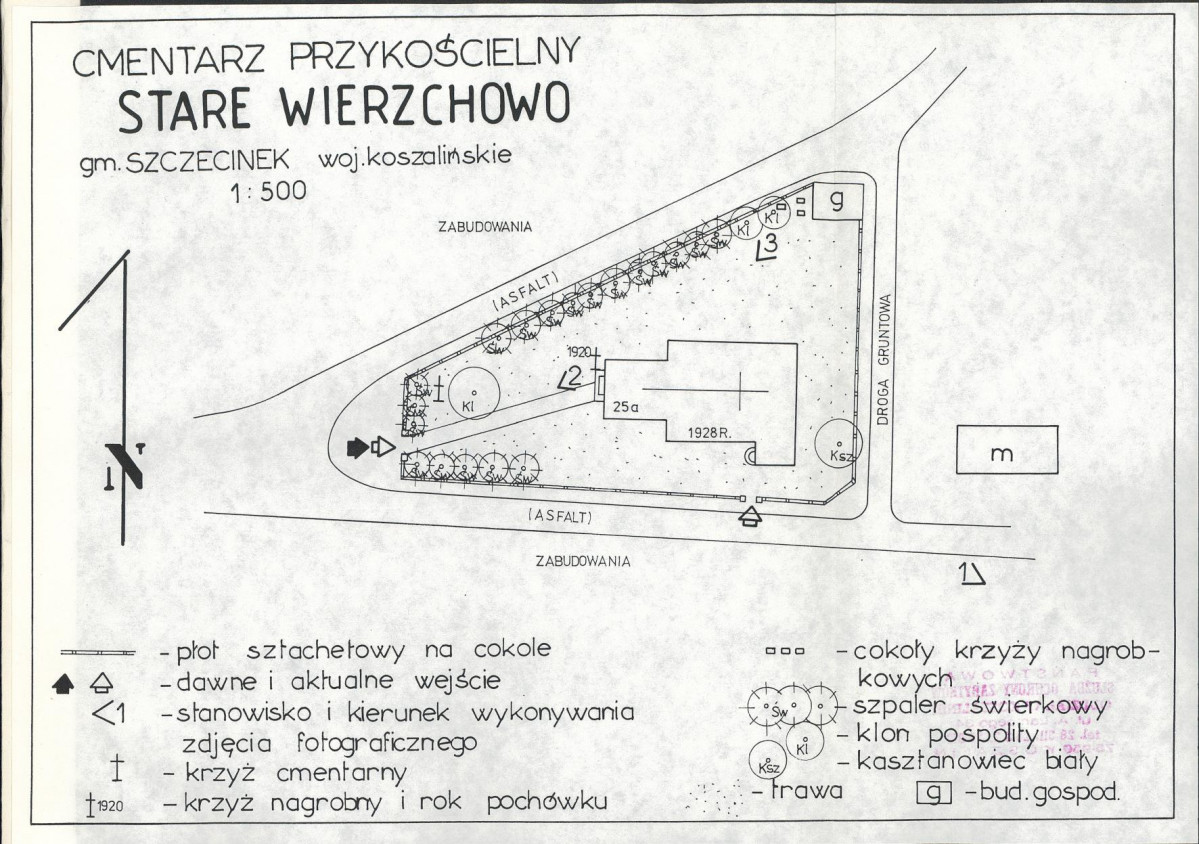 CMENTARZ PRZYKOŚCIELNY
STARE WIERZCHOWO
gm. SZCZECINEK woj. koszalińskie
1:500
ZABUDOWANIA
g
Kl
Kl
3
Św
Św
Św
Św
Św
Św
Św
Św
Św
Św
(ASFALT)
DROGA GRUNTOWA
1920
2
Św
Kl
Św
Św
25a
1928R.
Ksz
m
N
Św
Św
Św
Św
Św
(ASFALT)
ZABUDOWANIA
1
- płot sztachetowy na cokole
- dawne i aktualne wejście
1 - stanowisko i kierunek wykonywania
zdjęcia fotograficznego
- krzyż cmentarny
1920 - krzyż nagrobny i rok pochówku
- cokoły krzyży nagrob-
kowych
Św - szpaler świerkowy
Kl - klon pospolity
Ksz - kasztanowiec biały
- trawa
g - bud. gospod.